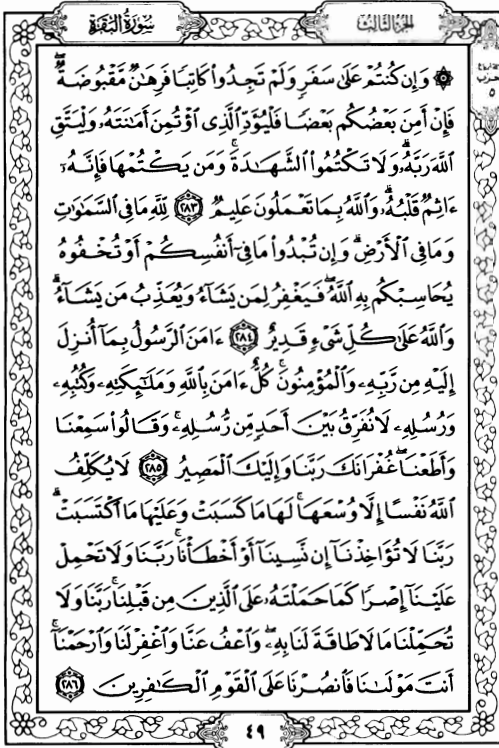 سُورَةُ البَقَرَةِ
الجُزءُ الثَّالِث
۞ وَإِن كُنتُمْ عَلَىٰ سَفَرٍ وَلَمْ تَجِدُوا۟ كَاتِبًا فَرِهَٰنٌ مَّقْبُوضَةٌ ۖ
فَإِنْ أَمِنَ بَعْضُكُم بَعْضًا فَلْيُؤَدِّ الَّذِى اؤْتُمِنَ أَمَٰنَتَهُۥ وَلْيَتَّقِ
اللَّهَ رَبَّهُۥ ۗ وَلَا تَكْتُمُوا۟ الشَّهَٰدَةَ ۚ وَمَن يَكْتُمْهَا فَإِنَّهُۥٓ
ءَاثِمٌ قَلْبُهُۥ ۗ وَاللَّهُ بِمَا تَعْمَلُونَ عَلِيمٌ ٢٨٣ لِّلَّهِ مَا فِى السَّمَٰوَٰتِ
وَمَا فِى الْأَرْضِ ۗ وَإِن تُبْدُوا۟ مَا فِىٓ أَنفُسِكُمْ أَوْ تُخْفُوهُ
يُحَاسِبْكُم بِهِ اللَّهُ ۖ فَيَغْفِرُ لِمَن يَشَآءُ وَيُعَذِّبُ مَن يَشَآءُ ۗ
وَاللَّهُ عَلَىٰ كُلِّ شَىْءٍ قَدِيرٌ ٢٨٤ ءَامَنَ الرَّسُولُ بِمَآ أُنزِلَ
إِلَيْهِ مِن رَّبِّهِۦ وَالْمُؤْمِنُونَ ۚ كُلٌّ ءَامَنَ بِاللَّهِ وَمَلَٰٓئِكَتِهِۦ وَكُتُبِهِۦ
وَرُسُلِهِۦ لَا نُفَرِّقُ بَيْنَ أَحَدٍ مِّن رُّسُلِهِۦ ۚ وَقَالُوا۟ سَمِعْنَا
وَأَطَعْنَا ۖ غُفْرَانَكَ رَبَّنَا وَإِلَيْكَ الْمَصِيرُ ٢٨٥ لَا يُكَلِّفُ
اللَّهُ نَفْسًا إِلَّا وُسْعَهَا ۚ لَهَا مَا كَسَبَتْ وَعَلَيْهَا مَا اكْتَسَبَتْ ۗ
رَبَّنَا لَا تُؤَاخِذْنَآ إِن نَّسِينَآ أَوْ أَخْطَأْنَا ۚ رَبَّنَا وَلَا تَحْمِلْ
عَلَيْنَآ إِصْرًا كَمَا حَمَلْتَهُۥ عَلَى الَّذِينَ مِن قَبْلِنَا ۚ رَبَّنَا وَلَا
تُحَمِّلْنَا مَا لَا طَاقَةَ لَنَا بِهِۦ ۖ وَاعْفُ عَنَّا وَاغْفِرْ لَنَا وَارْحَمْنَآ ۚ
أَنتَ مَوْلَىٰنَا فَانصُرْنَا عَلَى الْقَوْمِ الْكَٰفِرِينَ ٢٨٦
٤٩